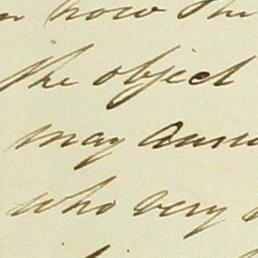 how the
the object
may
who very